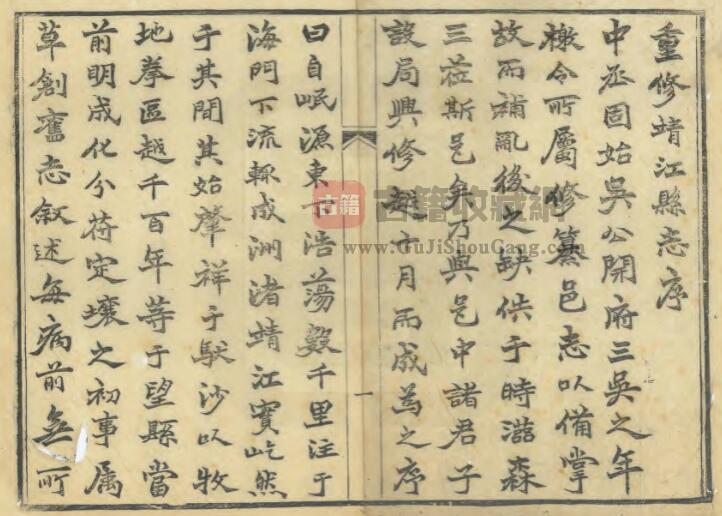 重修靖江縣志序
中丞固始吳公開府三吳之年
檄令所屬修纂邑志以備掌
故而補亂後之缺佚于時滋森
三莅斯邑矣乃與邑中諸君子
設局興修越六月而成為之序
一
曰自岷源東下浩蕩數千里注于
海門下流輒成洲渚靖江實屹然
于其間其始肇祥于馱沙以牧
地拳區越千百年等于望縣當
前明成化分符定壤之初事屬
草創舊志敘述每病前無所
古籍
古籍收藏網
www.GuJiShouCang.com